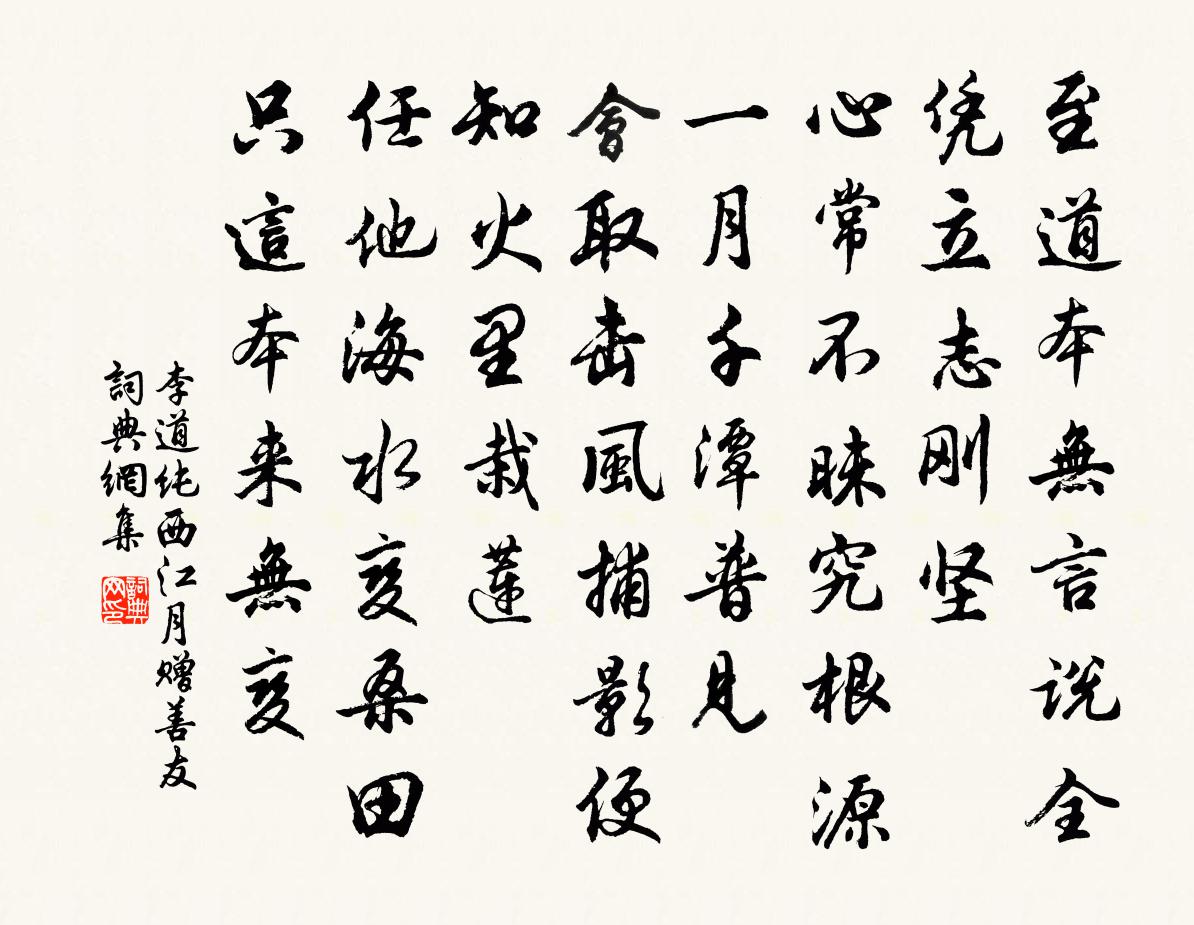 至道本無言说全
凭立志刚坚
心常不昧究根源
一月千潭普見
會取击風捕影便
知火里栽蓮
任他海水変桑田
只這本来無変
李道纯西江月赠善友
詞典網集